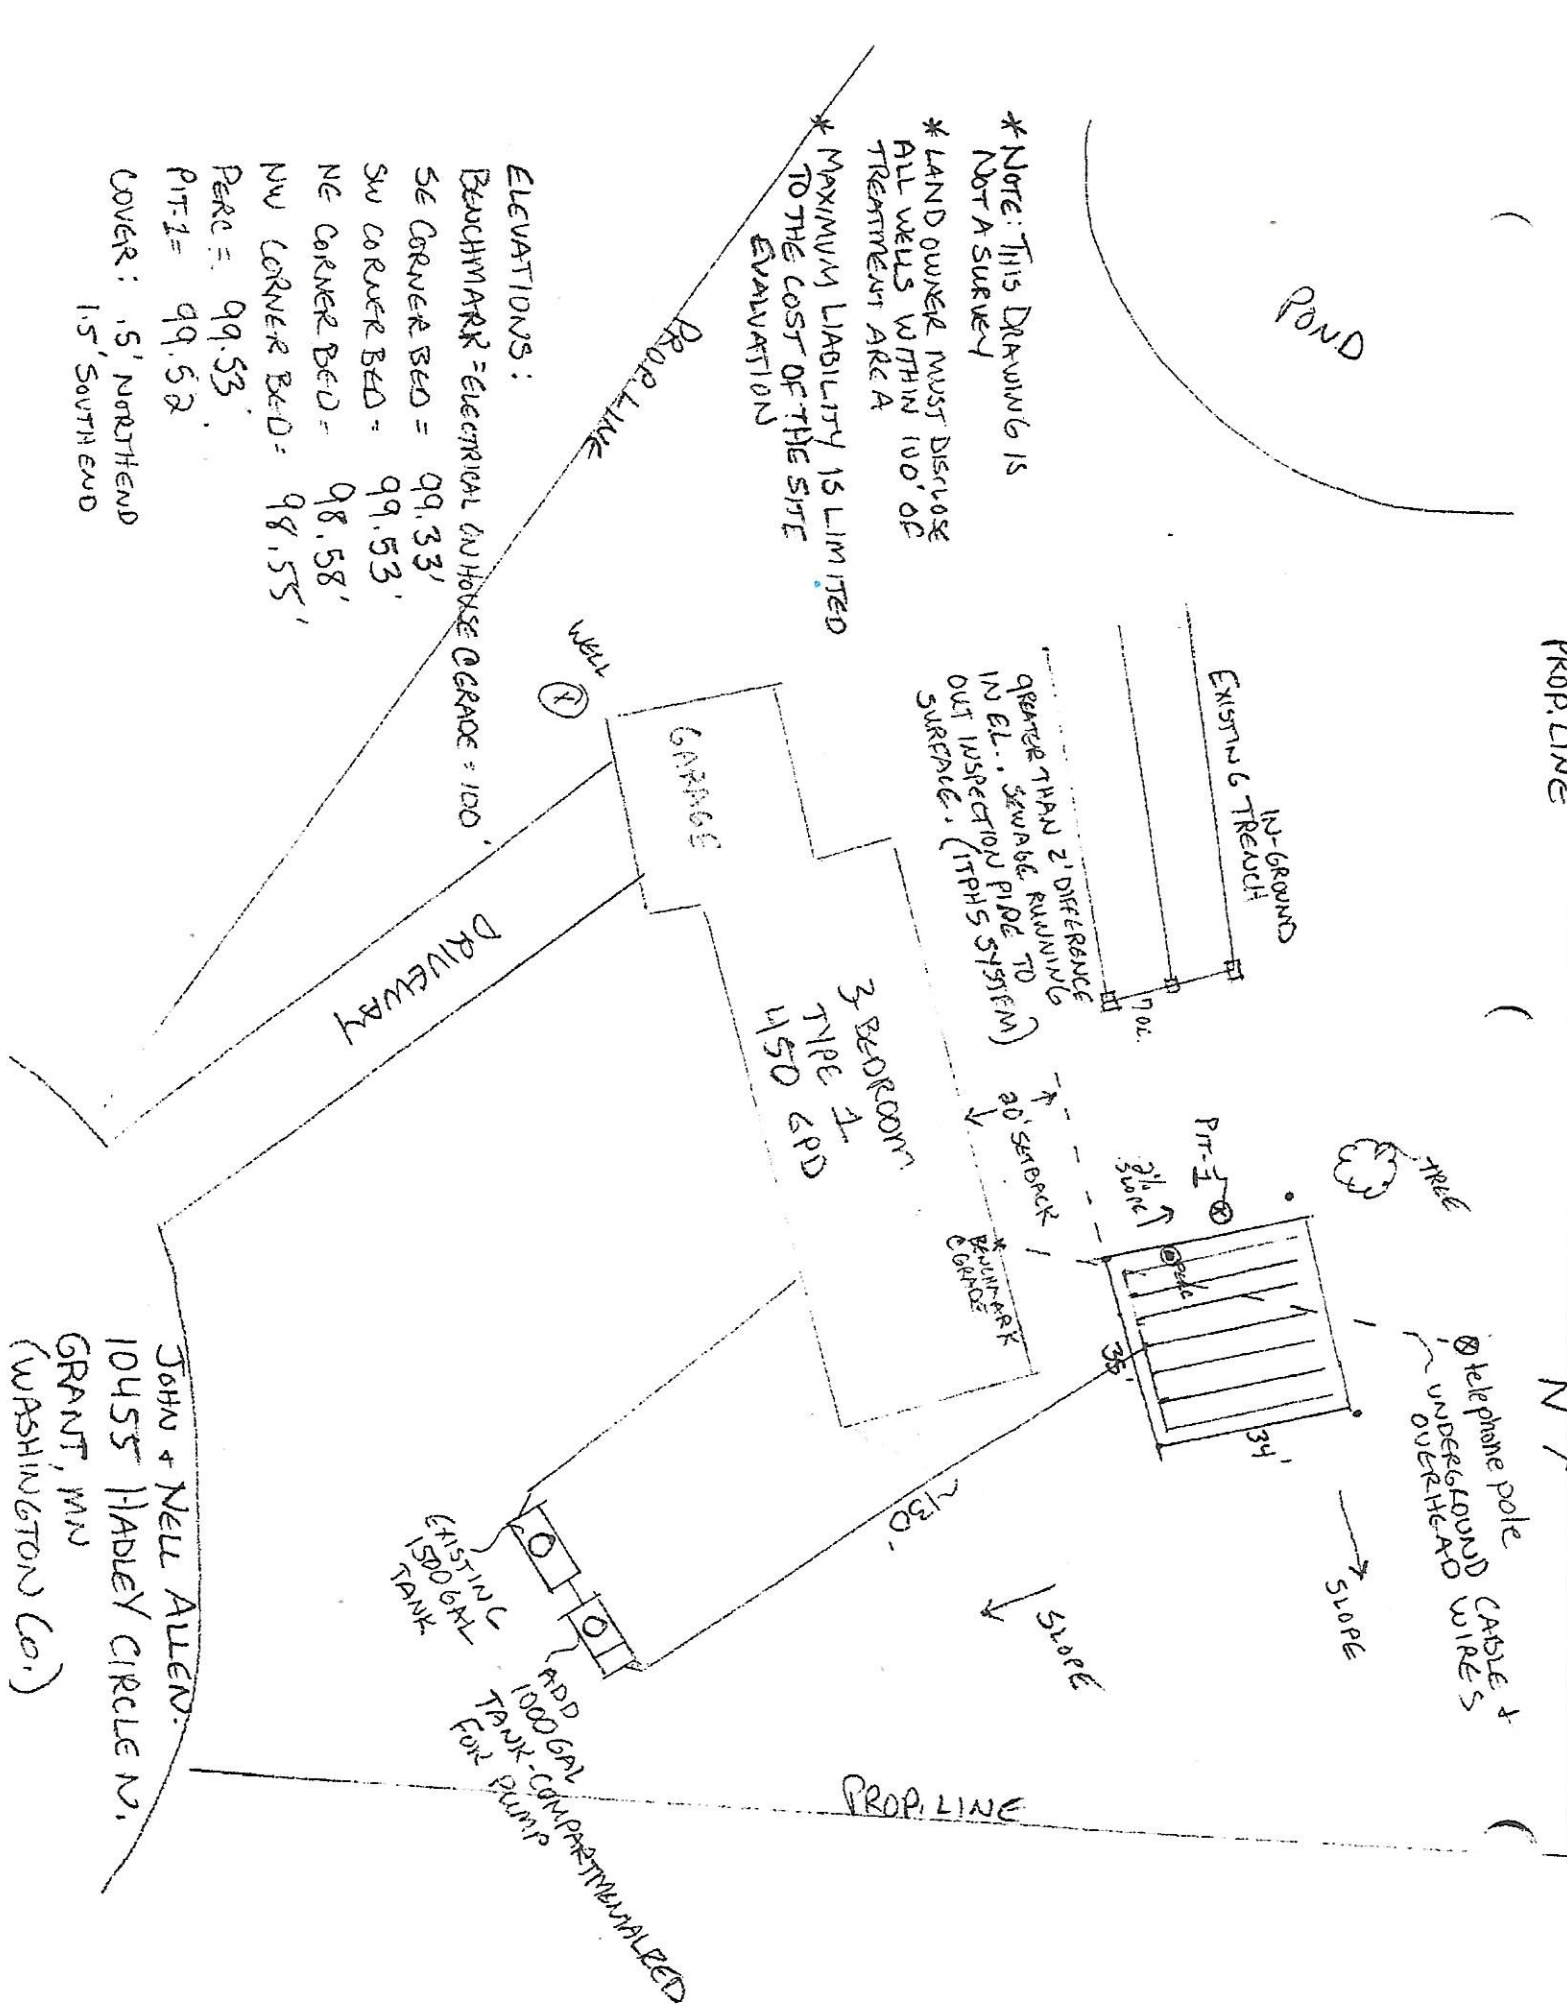 POND
PROP. LINE
N
*NOTE: THIS DRAWING IS
NOT A SURVEY
*LAND OWNER MUST DISCLOSE
ALL WELLS WITHIN 100' OF
TREATMENT AREA
*MAXIMUM LIABILITY IS LIMITED
TO THE COST OF THE SITE
EVALUATION
PROP. LINE
ELEVATIONS:
BENCHMARK = ELECTRICAL ON HOUSE @GRADE = 100'
SE CORNER BED = 99.33'
SW CORNER BED = 99.53'
NE CORNER BED = 98.58'
NW CORNER BED = 98.55'
PERC = 99.53'
PIT-1 = 99.52'
COVER: .5' NORTH END
1.5' SOUTH END
IN-GROUND
EXISTING TRENCH
GREATER THAN 2' DIFFERENCE
IN EL., SEWAGE RUNNING
OUT INSPECTION PIPE TO
SURFACE. (ITPHS SYSTEM)
WELL
GARAGE
DRIVEWAY
3 BEDROOM
TYPE 1
450 GPD
20' SETBACK
*
BENCHMARK
@GRADE
PIT-1
2%
SLOPE
PERC
TREE
35'
34'
telephone pole
UNDERGROUND CABLE +
OVERHEAD WIRES
SLOPE
SLOPE
~130'
EXISTING
1500 GAL
TANK
ADD
1000 GAL
TANK-COMPARTMENTALIZED
FOR PUMP
PROP. LINE
JOHN + NELL ALLEN:
10455 HADLEY CIRCLE N.
GRANT, MN
(WASHINGTON CO.)